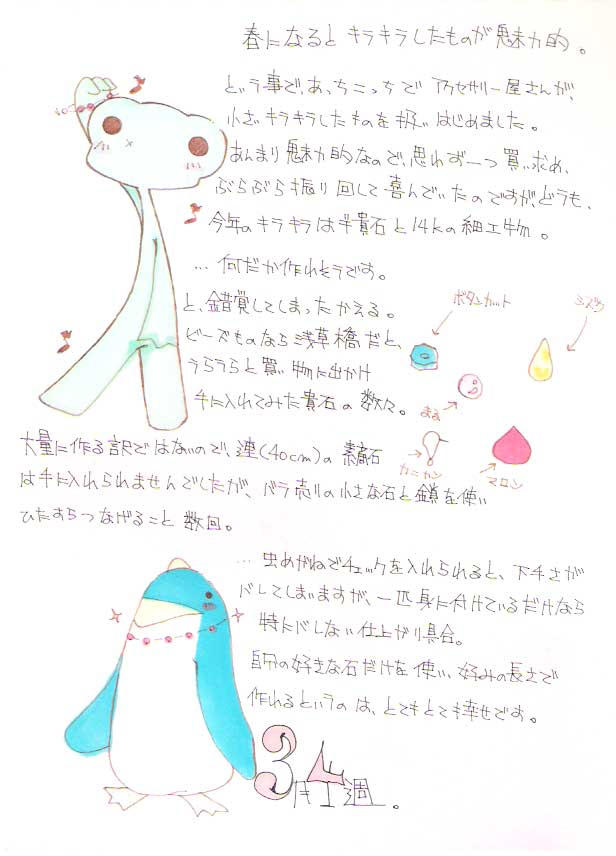 春になると キラキラしたものが魅力的。
という事で、あっちこっちで アクセサリー屋さんが、
小さいキラキラしたものを扱いはじめました。
あんまり魅力的なので、思わず一つ買い求め、
ぶらぶら振り回して喜んでいたのですが、どうも、
今年のキラキラは半貴石と14kの細工物。
…何だか作れそうです。
と、錯覚してしまったかえる。
ビーズものなら浅草橋だと、
うらうらと買い物に出かけ
手に入れてみた貴石の数々。
ボタンカット
シズク
まる
カニカン
マロン
大量に作る訳ではないので、連(40cm)の素高石
は手に入れられませんでしたが、バラ売りの小さな石と鎖を使い
ひたすらつなげること数回。
…虫めがねでチェックを入れられると、下手さが
バレてしまいますが、一匹身に付けているだけなら
特にバレない仕上がり具合。
自分の好きな石だけを使い、好みの長さで
作れるというのは、とてもとても幸せです。
3月 1週。